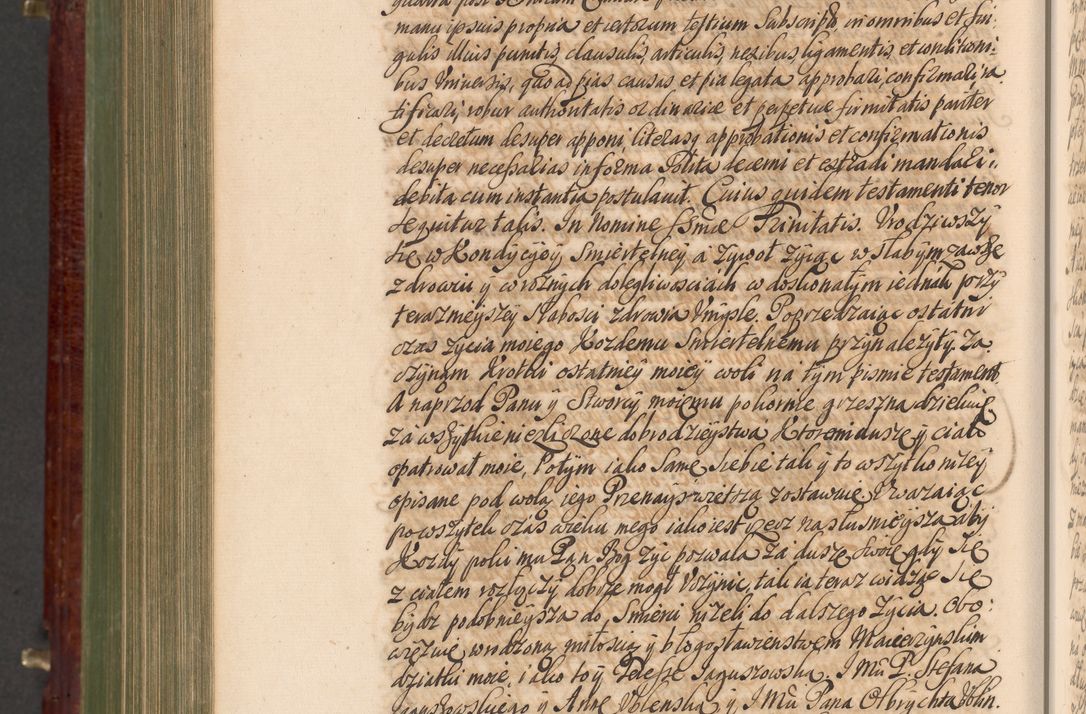 manu ipsius propria et certorum testium subscripta in omnibus et sin:
gulis illius punctis, clausulis, articulis, nexibus, ligamentis, et conditioni:
bus Universis, quo ad pias causas et pia legata approbari, confirmari, ra
tificari, robur authoritatis ordinariae et perpetuae firmitatis pariter
et decretum desuper apponi, literasq approbationis et confirmationis
desuper necessarias in forma solita decerni et extradi mandari:
debita cum instantia postulavit. Cuius quidem testamenti tenor
sequitur talis. In Nomine SSmae Trinitatis. Urodziwszy
się w Kondycyey Smiertelney, a zywot zyiąc w słabym zawsze
zdrowiu y w roznych dolegliwosciach w doskonałym iednak przy
terazniejszey słabosci zdrowia Umysle. Poprzedzaiąc ostatni
czas zycia moiego Kozdemu Smiertelnemu przynalezyty. Za
czynam Krotki ostatniey moiey woli na tym pismie testament.
A naprzod Panu y Stworcy moiemu pokornie grzeszna dziekuię,
za wszytkie niezliczone dobrodzieystwa, Ktoremi duszę y ciało
opatrował moie, Potym iako Samę siebie tak y to wszytko nizey
opisane pod wolą iego Przenayswiętrzą zostawuię. Uwazaiąc
po wszytek czas wieku mego iako iest rzecz nasłusnieysza aby
Kozdy poki mu Pan Bog zyc pozwala za duszę Swoię gdy się
z ciałem rozłączy, dobrze mogł Uczynic, tak ia teraz widzę się
bydz podobnieysza do Smierci nizeli do dalszego zycia. Obo:
więzuię wrodzoną miłoscią y błogosławienstwem Macerzynskim
dziatki moie, iako to y Teressę Januszowską. I Mci P. Stefana
Januszowskiego y Annę Ublenską y I Mci Pana Olbrychta Ublin.